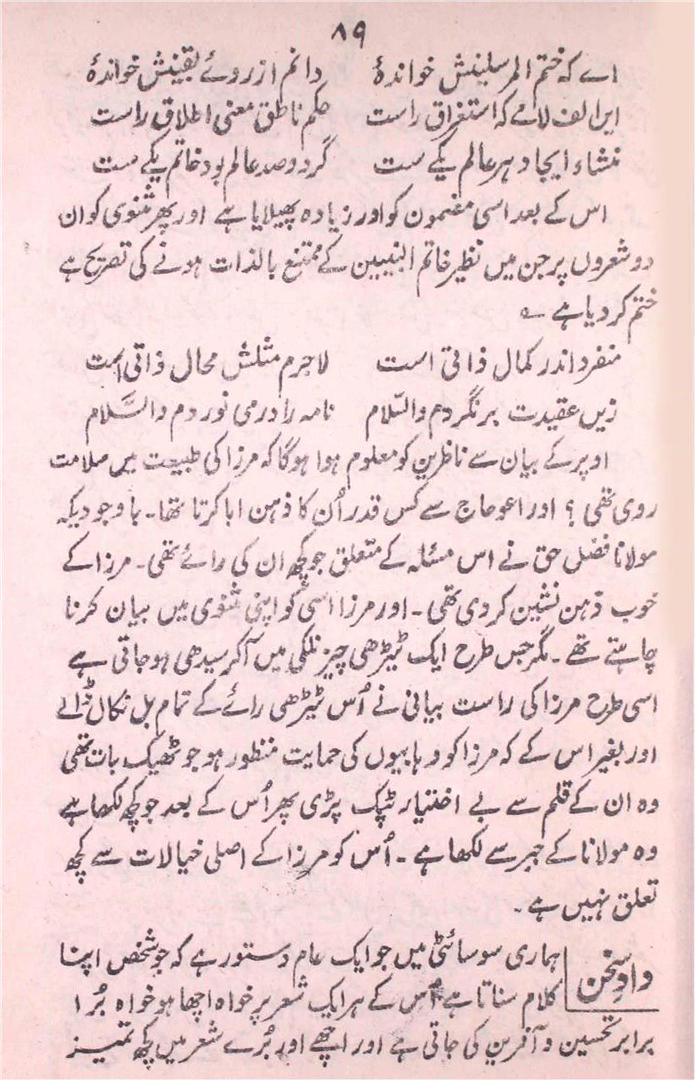 ۸۹
اے کہ ختم المرسلینش خواندۂ دانم از روئے یقینش خواندۂ
ایں الف لامے کہ استغراق راست حکم ناطق معنی اطلاق راست
منشاء ایجاد ہر عالم یکے ست گر دو صد عالم بود خاتم یکے ست
اس کے بعد اسی مضمون کو اور زیادہ پھیلایا ہے اور پھر مثنوی کو ان
دو شعروں پر جن میں نظیر خاتم النبیین کے ممتنع بالذات ہونے کی تصریح ہے
ختم کر دیا ہے ؎
منفرد اندر کمال ذاتی است لاجرم مثلش محال ذاتی است
زیں عقیدت برنگردم والسّلام نامہ را درمی نوردم والسَّلام
اوپر کے بیان سے ناظرین کو معلوم ہوا ہوگا کہ مرزا کی طبیعت میں سلامت
روی تھی ؟ اور اعوجاج سے کس قدر اُن کا ذہن ابا کرتا تھا۔ باوجودیکہ
مولانا فضل حق نے اس مسٔلہ کے متعلق جو کچھ ان کی رائے تھی۔ مرزا کے
خوب ذہن نشین کر دی تھی۔ اور مرزا اسی کو اپنی مثنوی میں بیان کرنا
چاہتے تھے۔ مگر جس طرح ایک ٹیڑھی چیز نلکی میں آکر سیدھی ہوجاتی ہے
اسی طرح مرزا کی راست بیانی نے اُس ٹیڑھی رائے کے تمام بل نکال ڈالے
اور بغیر اس کے کہ مرزا کو وہابیوں کی حمایت منظور ہو جو ٹھیک بات تھی
وہ ان کے قلم سے بے اختیار ٹپک پڑی پھر اُس کے بعد جو کچھ لکھا ہے
وہ مولانا کے جبر سے لکھا ہے۔ اُس کو مرزا کے اصلی خیالات سے کچھ
تعلق نہیں ہے۔
دادِ سخن
ہماری سوسائٹی میں جو ایک عام دستور ہے کہ جو شخص اپنا
کلام سناتا ہے اُس کے ہر ایک شعر پر خواہ اچھا ہو خواہ بُرا
برابر تحسین و آفرین کی جاتی ہے اور اچھے اور بُرے شعر میں کچھ تمیز